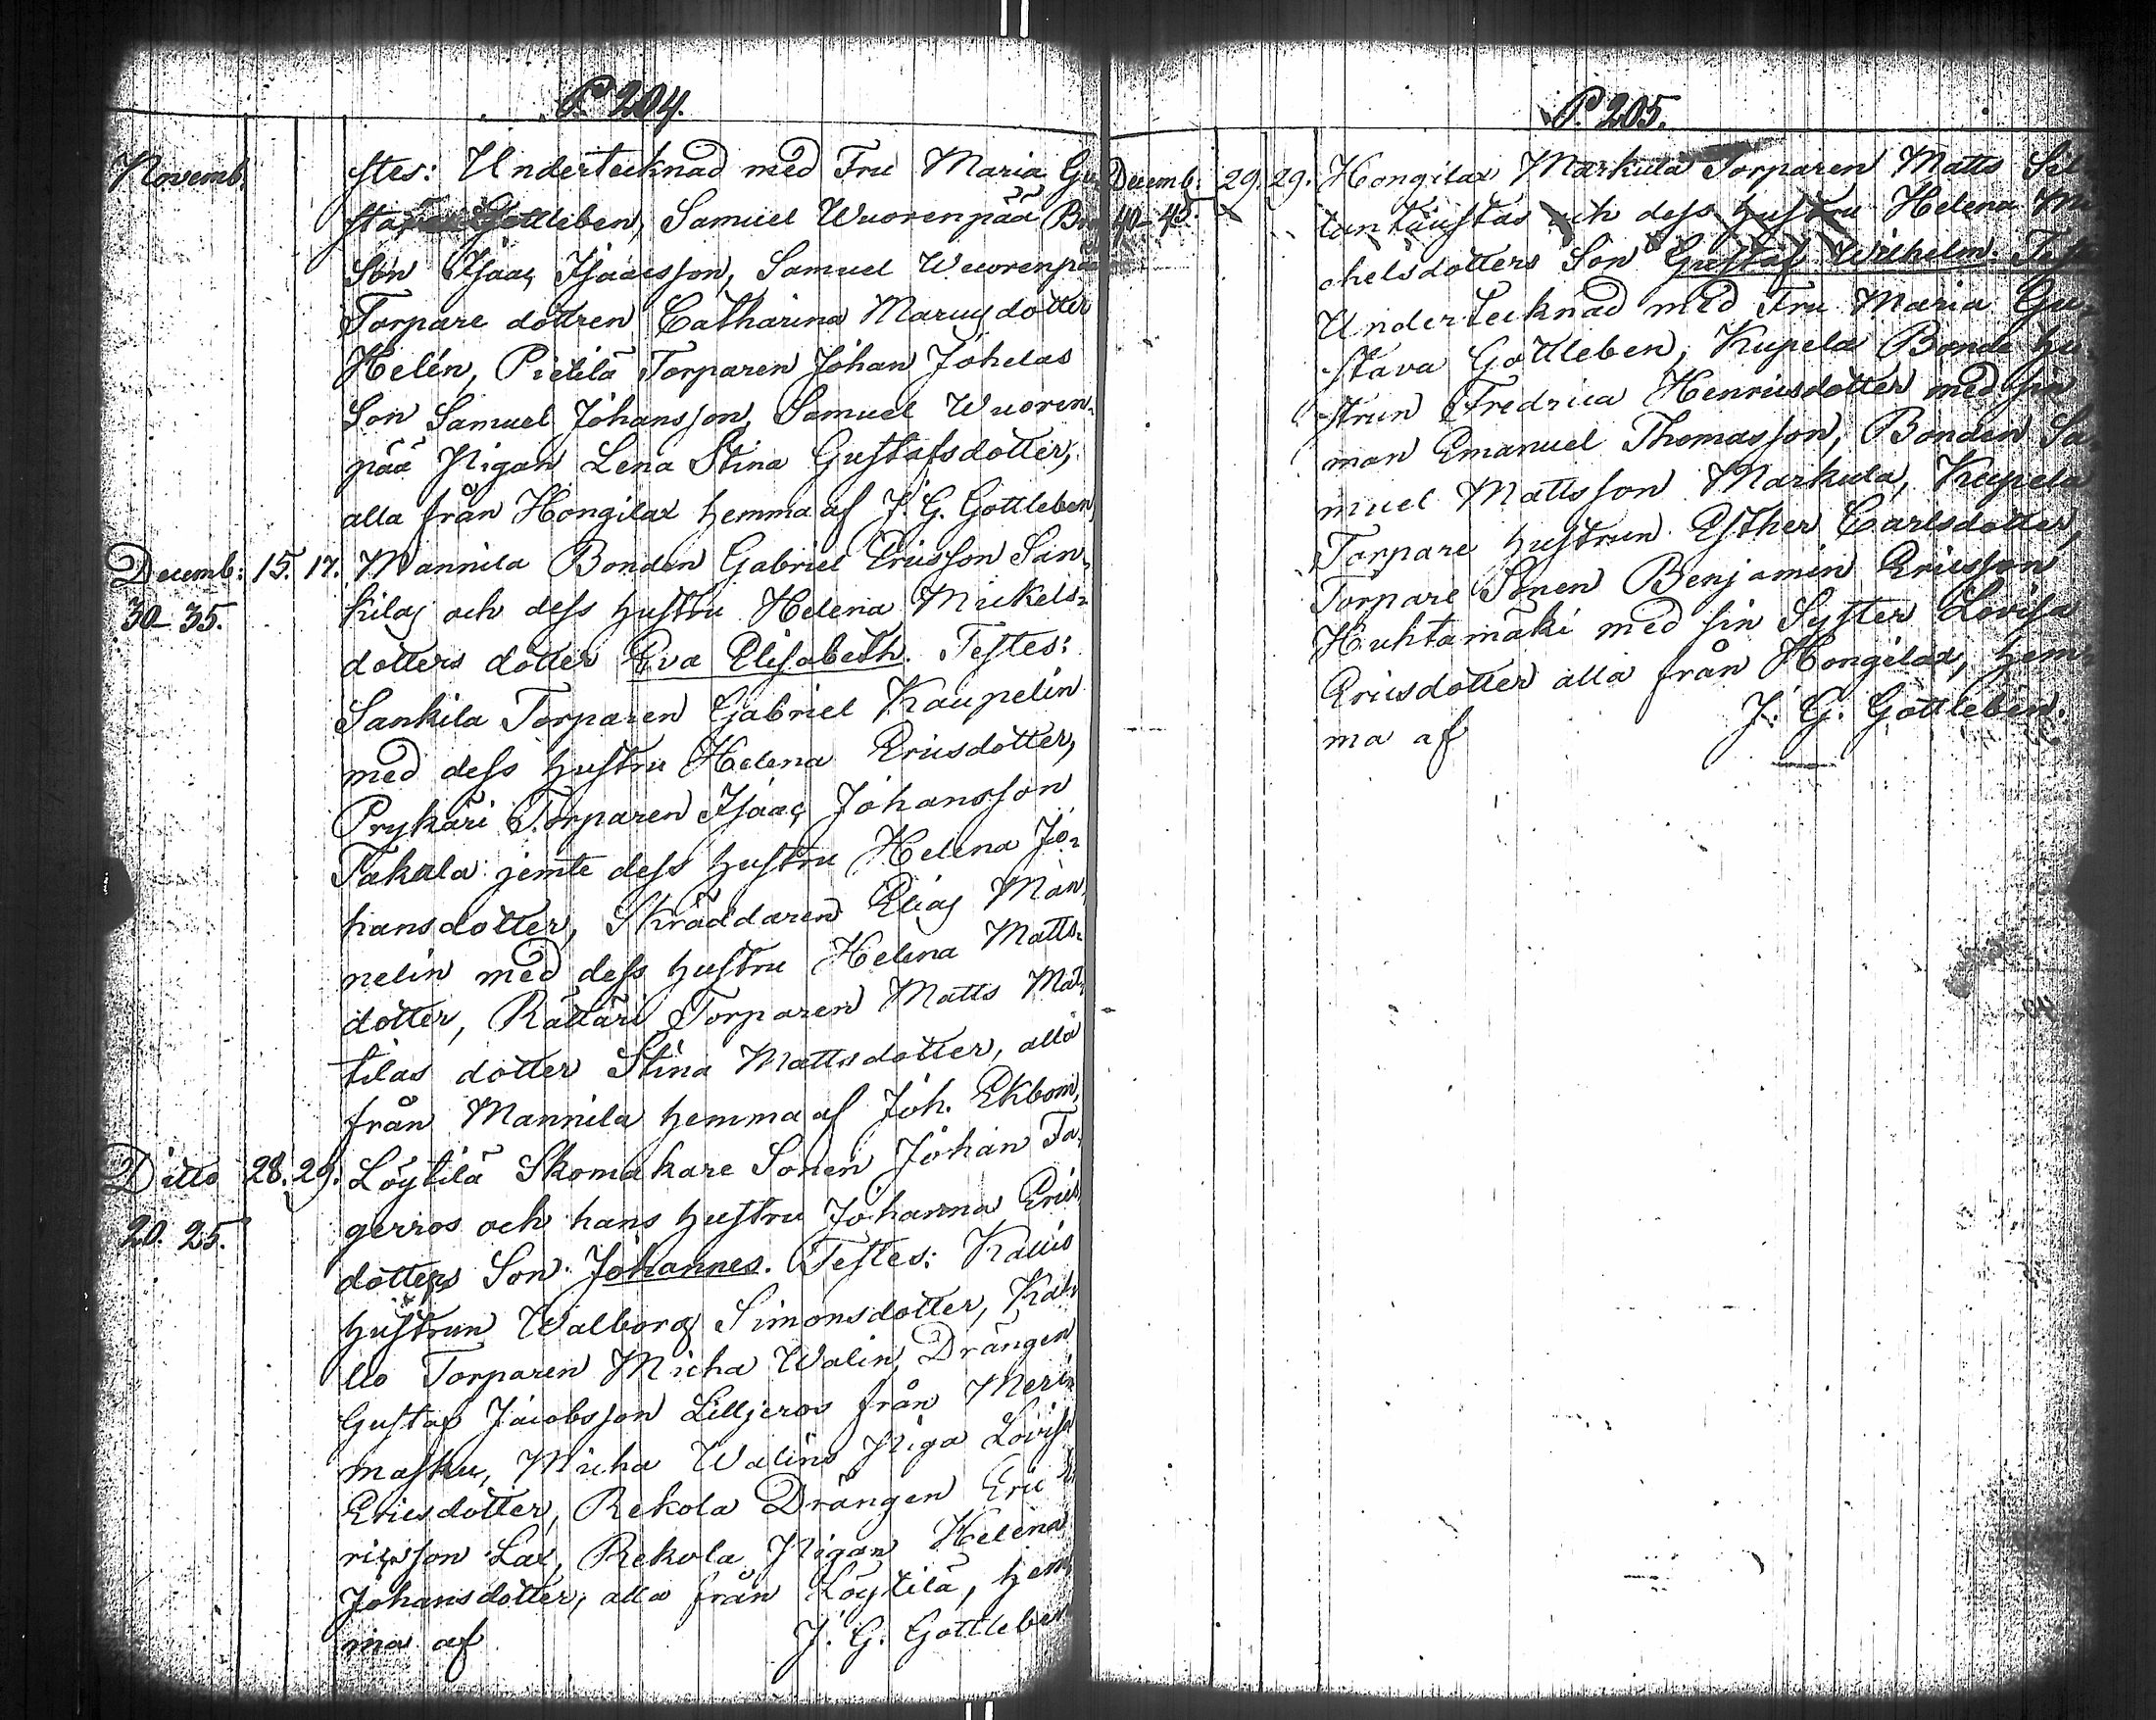 P. 204.
Novemb: stes: Undertecknad med Fru Maria Gu-
stafva Gottleben, Samuel Wuorenpää Bro
Son Isaac Isaacsson, Samuel Wuorenpää
Torpare dottren Catharina Marcusdotter
Helén, Pietilä Torparen Johan Johelas
Son Samuel Johansson, Samuel Wuoren-
pää Pigan Lena Stina Gustafsdotter,
alla från Hongilax hemma af J. G. Gottleben,
Decemb: 15. 17. Mannila Bonden Gabriel Ericsson San-
30-35. kilas och dess hustru Helena Mickels-
dotters dotter Eva Elisabeth. Testes:
Sankila Torparen Gabriel Kaupelin
med dess hustru Helena Ericsdotter,
Prykäri Torparen Isaac Johansson
Takala jemte dess hustru Helena Jo-
hansdotter, Skräddaren Elias Man-
nelin med dess hustru Helena Matts-
dotter, Rättäri Torparen Matts Mat-
tilas dotter Stina Mattsdotter, alla
från Mannila hemma af Joh. Ekbom,
Ditto 28. 29. Löytilä Skomakare Sonen Johan Ta-
20. 25. gerros och hans hustru Johanna Erics
dotters Son Johannes. Testes: Kallio
hustrun Walborg Simonsdotter, Kal-
lio Torparen Micha Walin, Drängen
Gustaf Jacobsson Lilljeros från Meri-
masku, Micha Walins Piga Lovisa
Ericsdotter, Rekola Drängen Eric
ricsson Lax, Rekola Pigan Helena
Johansdotter, alla från Löytilä, hem-
ma af J. G. Gottleben
P. 205.
Decemb: 29. 29. Hongilax Markula Torparen Matts Sil-
40-45. tantaustas och dess hustru Helena Mi-
chelsdotters Son Gustaf Wilhelm. Teste
Undertecknad med Fru Maria Gu-
stava Gottleben, Kupela Bonde hu-
strun Fredrica Henricsdotter med sin
man Emanuel Thomasson, Bonden Sa-
muel Mattsson Markula, Kupela
Torpare hustrun Esther Carlsdotter,
Torpare Sonen Benjamin Ericsson
Huhtamäki med sin Syster Lovisa
Ericsdotter alla från Hongilax, hem-
ma af J. G. Gottleben.